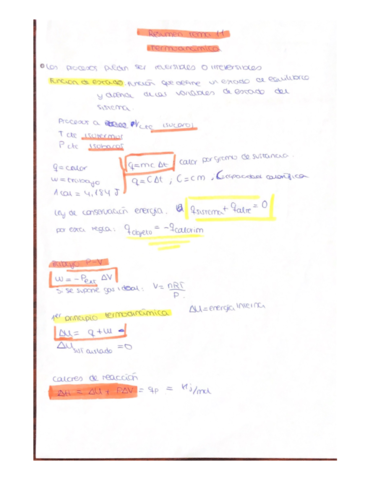 Resumen tema 11
termodinámica
Los procesos pueden ser reversibles o irreversibles
función de estado: función que define un estado de equilibrio
y depende de las variables de estado del
sistema
Proceso a V cte isocoro
T cte isotermo
P cte isobaro
q=calor
w=trabajo
1 cal = 4,184 J
q=mcΔt calor por gramo de sustancia.
q=CΔt, C=cm,
Ley de conservación energía: q sistema + q alred = 0
por esta regla: q objeto = -q calorim
trabajo P-V
w = -Pext ΔV
Si se supone gas ideal: V = nRT/P
1er principio termodinámica ΔU=energía interna
ΔU = q + w
ΔU sist aislado = 0
calores de reacción
ΔH = ΔU + PΔV = qp = kJ/mol